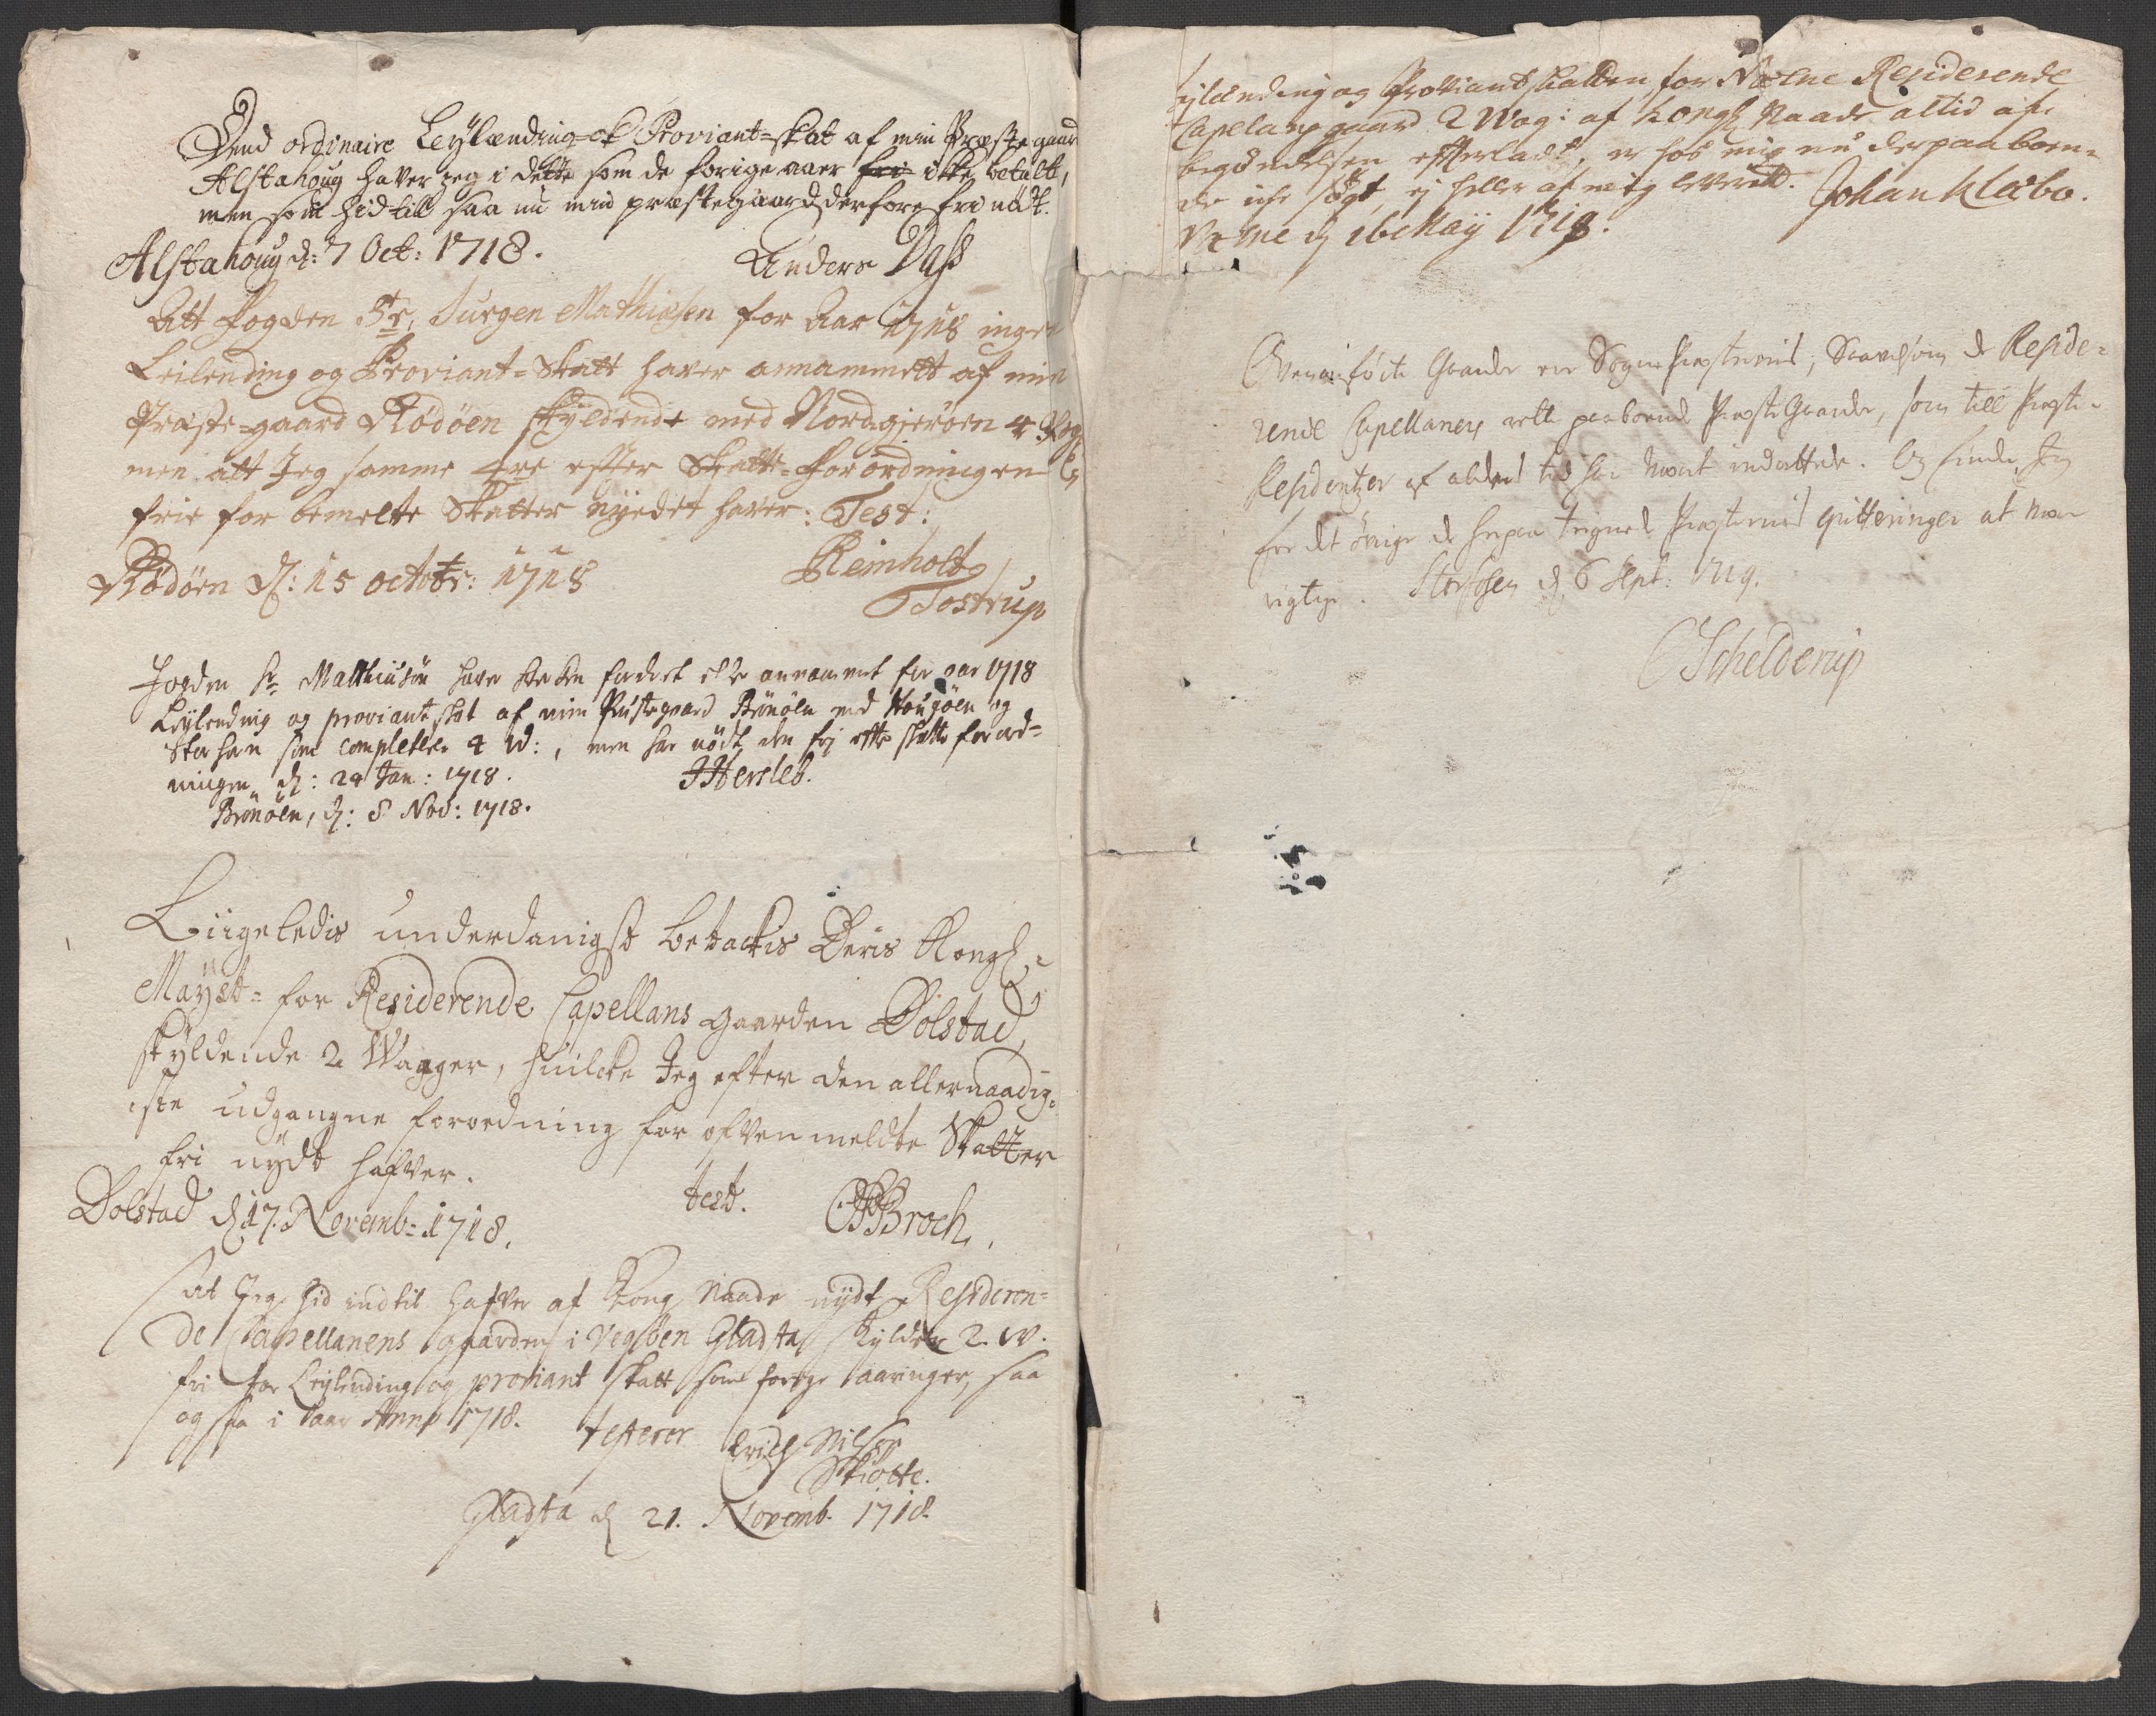 Dend ordinaire Leylænding- ok Proviant-skat af min Præste gaard
Alstahoug haver jeg i dette som de forige aaer fri icke betalt,
men som hid till saa nu min præstegaard derfore fri nödt.
Alstahoug d: 7 Oct: 1718.
Anders Dass
Att Fogden Sr. Jurgen Mathiesen for Aar 1718 inget
Leilending og Proviant-Skatt haver annammett af min
Præste-gaard Rödöen skyldende med Nordgjeröen 4
men att Jeg samme efter Skatte-Forordningen
frie for bemelte Skatter nyedet haver: Test:
Rödöen d: 15 octobr: 1718
Reinholt
Tostrup
Fogden Sr Matthiesön haver icke annammet for aar 1718
Leylending og proviant skat af min Præstegaard Brönöen med Hougöen og
Storhan som completter 4 W:, men har nödt den fri efter skatte forord-
ningen d: 24 Jan: 1718.
JHersleb.
Brönöen, d: 8 Nov: 1718.
Liigeledis underdanigst betackis Deris Kongl-
Mayst- for Residerende Capellans gaarden Dolstad,
skyldende 2 Wagger, huilcke Jeg efter den allernaadig-
ste udgangne forordning for ofvenmeldte Skatter
fri nydt hafver.
Dolstad d 17. Novemb- 1718.
test.
Broch.
At Jeg hid indtil hafver af Kong Naade nydt Resideren-
de Capellanens gaarden i Vegöen Gladsta skylder 2. W.
fri for Leylending og proviant skatt som forige aaringer, saa
og saa i aar Anno 1718.
testerer Erich Nilsøn
Skiötte.
Gladsta d 21. Novemb. 1718.
Leylending og Proviant skatten for Næsne Residerende
Capelans gaard 2 Wog: af Kongl Naade altid af
begyndelsen efterladt, er hos mig nu derpaa boen-
de icke sögt, ej heller af mig levert.
Johan Klæbo.
Næsne d 16 May 1718.
Ovenanförte Gaarde ere Sogne Præsternis, Saavelsom de Reside-
rende Capellaners rette paaboende Præste Gaarde, som till Præste-
Residentzer af alders tid har veret indrettede. Og finder Jeg
for det övrige de herpaa teignede Præsternis quitteringer at være
rigtige. d 6 Sept: 1719.
Schelderup